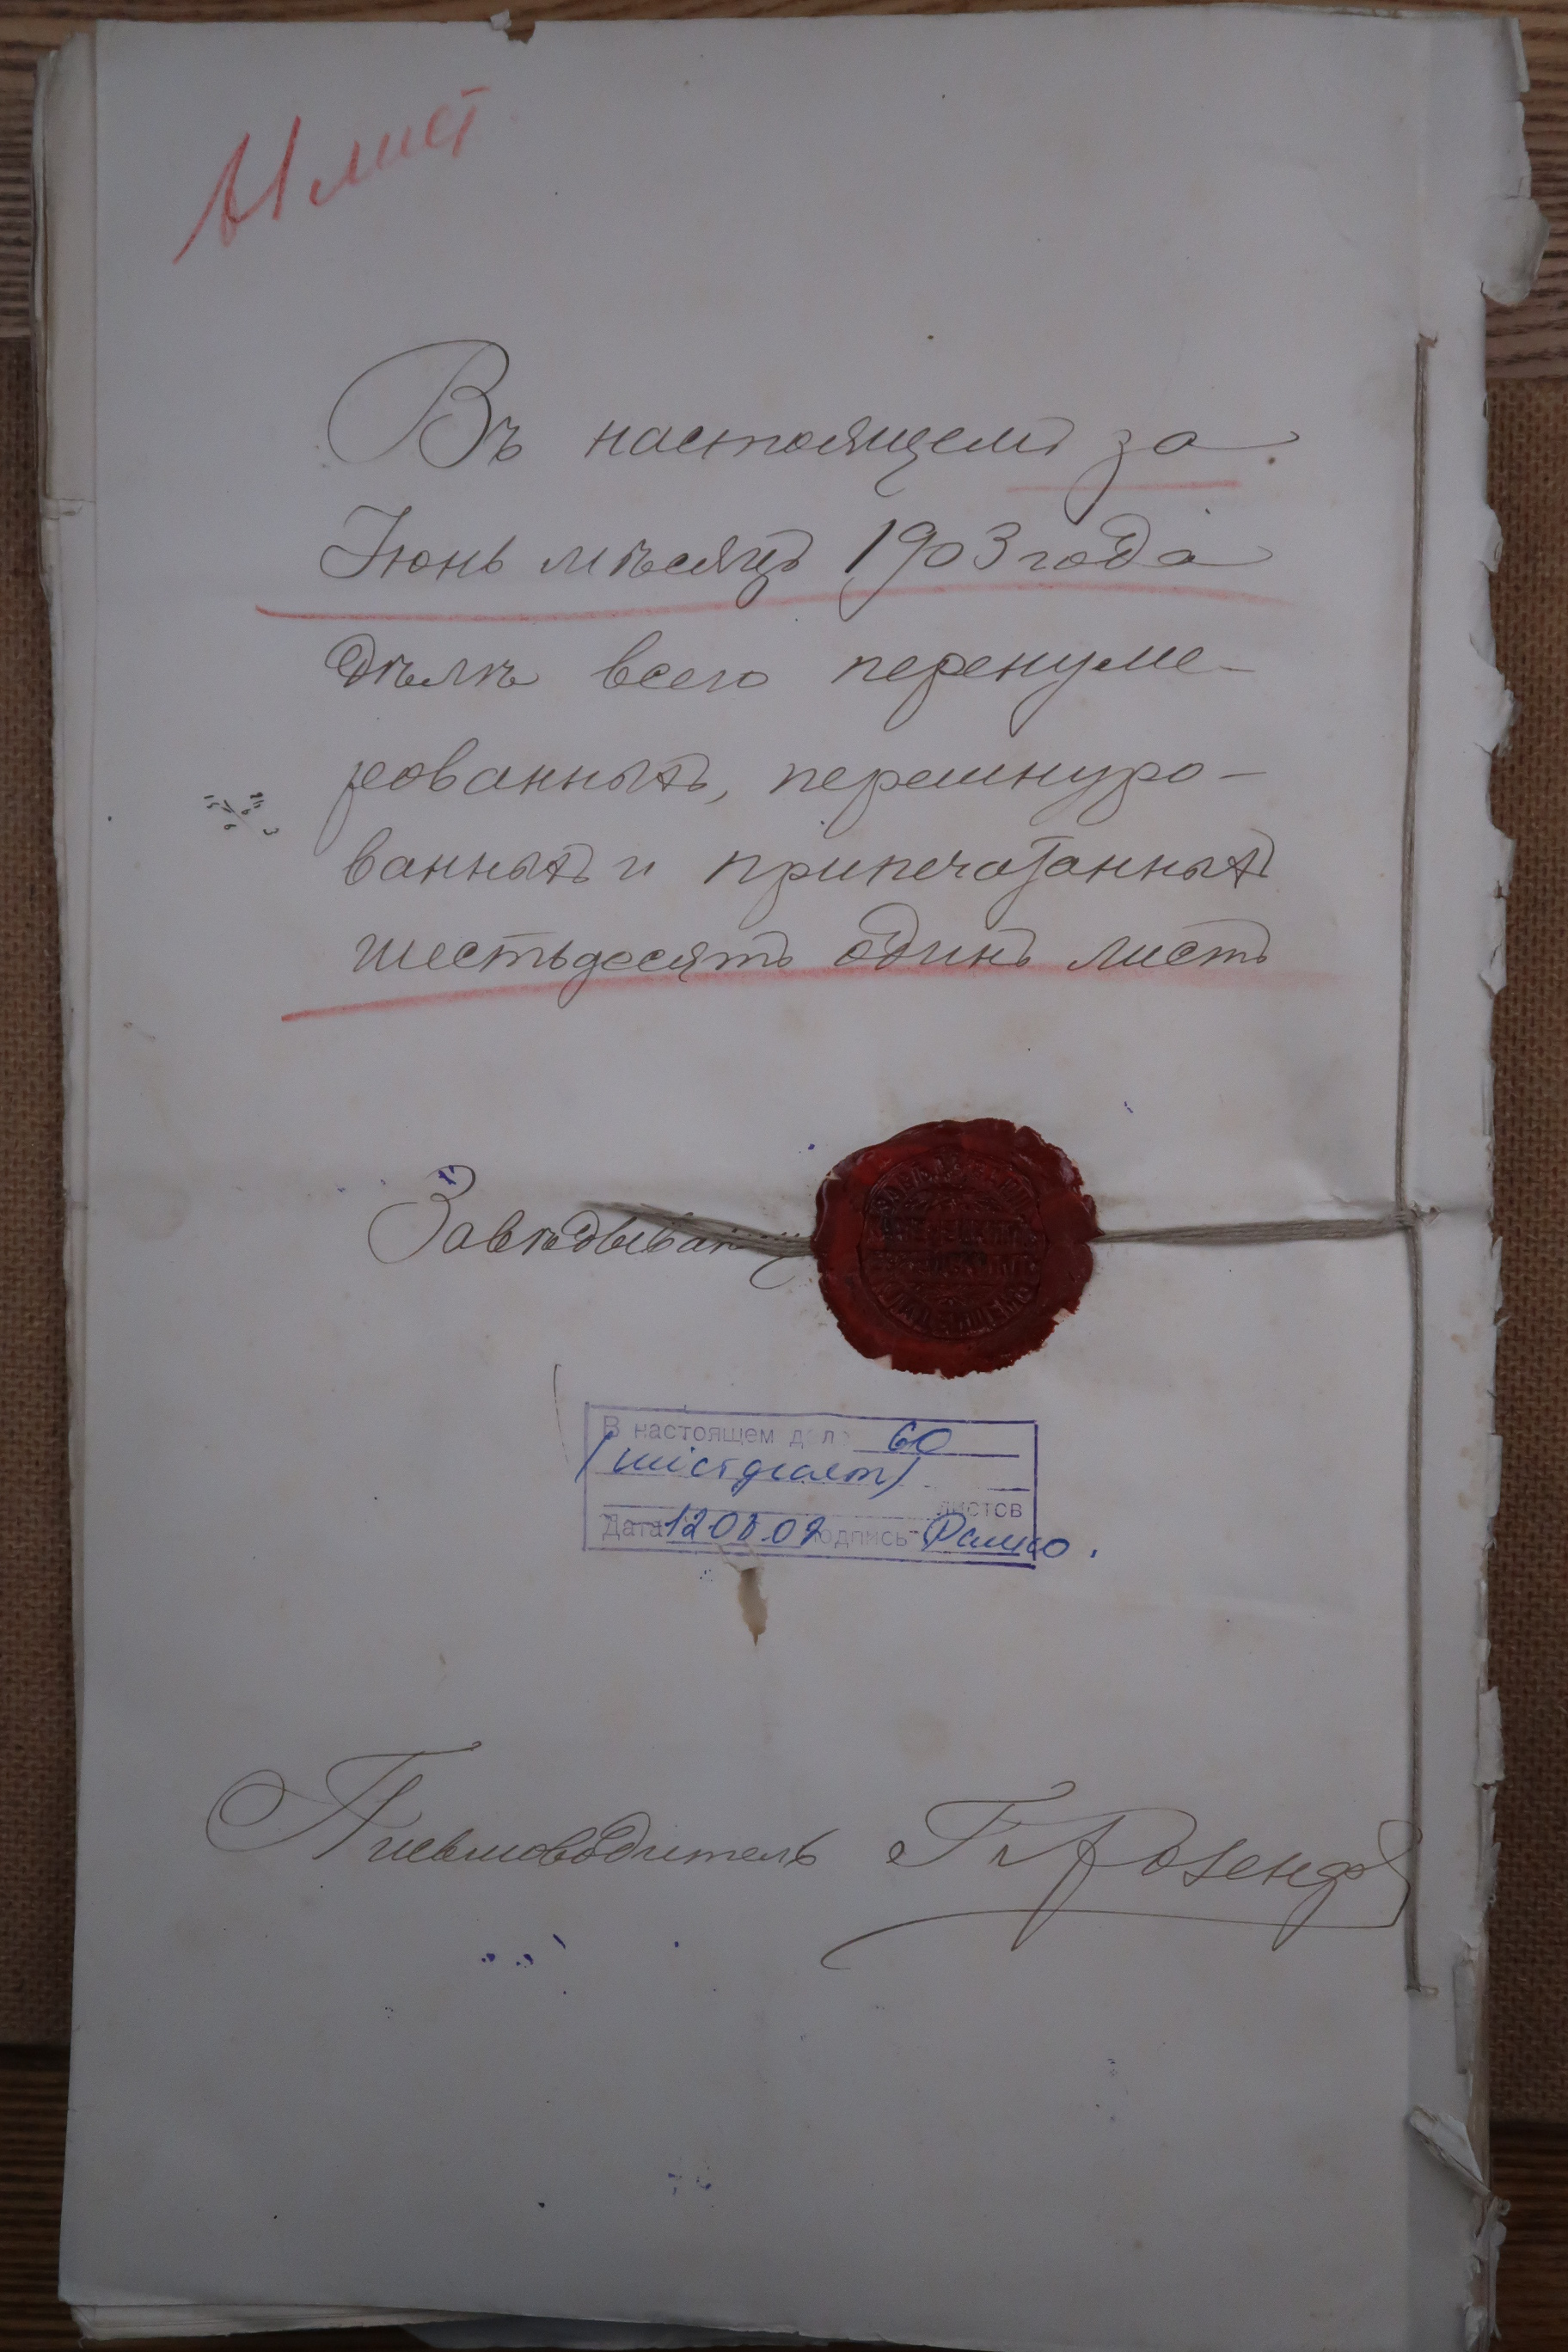 61 лист
Въ настоящемъ за
Июнь мѣсяцъ 1903 года
дѣлѣ всего перенуме-
рованныхъ, перешнуро-
ванныхъ и припечатанныхъ
шестьдесятъ одинъ листъ
Завѣдывающ
В настоящем деле 60
(шістдесят)
листов
Дата 12.08.02 подпись
Письмоводитель